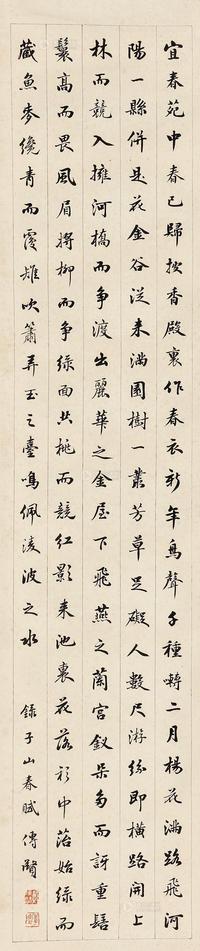 宜春苑中春已歸披香殿裏作春衣新年鳥聲千種囀二月楊花滿路飛河
陽一縣併是花金谷從來滿園樹一叢芳草足礙人數尺游絲即橫路開上
林而競入擁河橋而爭渡出麗華之金屋下飛燕之蘭宮釵朵多而訝重髻
鬟高而畏風眉將柳而爭綠面共桃而競紅影來池裏花落衫中苔始綠而
藏魚麥纔青而覆雉吹簫弄玉之臺鳴佩淩波之水
錄子山春賦傅